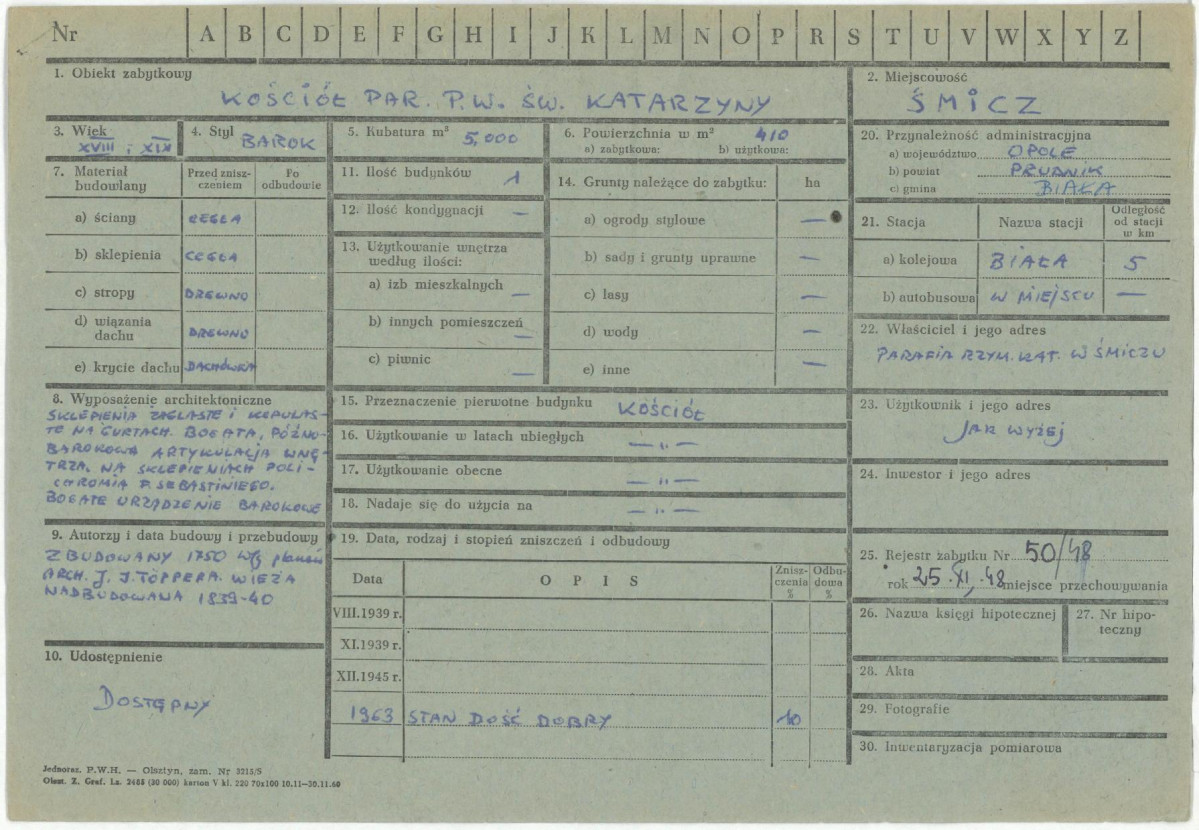 Nr A B C D E F G H I J K L M N O P R S T U V W X Y Z
1. Obiekt zabytkowy
KOŚCIÓŁ PAR. P.W. ŚW. KATARZYNY
2. Miejscowość
ŚMICZ
3. Wiek
XVIII i XIX
4. Styl
BAROK
5. Kubatura m³
5,000
6. Powierzchnia w m² 410
a) zabytkowa: b) użytkowa:
20. Przynależność administracyjna
a) województwo OPOLE
b) powiat PRUDNIK
c) gmina BIAŁA
7. Materiał
budowlany
Przed znisz-
czeniem
Po
odbudowie
a) ściany CEGŁA
b) sklepienia CEGŁA
c) stropy DREWNO
d) wiązania
dachu DREWNO
e) krycie dachu DACHÓWKA
11. Ilość budynków 1
12. Ilość kondygnacji —
13. Użytkowanie wnętrza
według ilości:
a) izb mieszkalnych —
b) innych pomieszczeń —
c) piwnic —
14. Grunty należące do zabytku: ha
a) ogrody stylowe —
b) sady i grunty uprawne —
c) lasy —
d) wody —
e) inne —
21. Stacja Nazwa stacji
Odległość
od stacji
w km
a) kolejowa BIAŁA 5
b) autobusowa W MIEJSCU —
22. Właściciel i jego adres
PARAFIA RZYM. KAT. W ŚMICZU
8. Wyposażenie architektoniczne
SKLEPIENIA ŻAGLASTE I KOPULAS-
TE NA GURTACH. BOGATA, PÓŹNO-
BAROKOWA ARTYKULACJA WNĘ-
TRZA. NA SKLEPIENIACH POLI-
CHROMIA F. SEBASTINIEGO.
BOGATE URZĄDZENIE BAROKOWE
15. Przeznaczenie pierwotne budynku KOŚCIÓŁ
16. Użytkowanie w latach ubiegłych — „ —
17. Użytkowanie obecne — „ —
18. Nadaje się do użycia na — „ —
23. Użytkownik i jego adres
JAK WYŻEJ
24. Inwestor i jego adres
9. Autorzy i data budowy i przebudowy
ZBUDOWANY 1750 wg planów
ARCH. J. J. TÖPPERA. WIEŻA
NADBUDOWANA 1839-40
10. Udostępnienie
DOSTĘPNY
19. Data, rodzaj i stopień zniszczeń i odbudowy
Data OPIS
Znisz-
czenia
%
Odbu-
dowa
%
VIII.1939 r.
XI.1939 r.
XII.1945 r.
1963 STAN DOŚĆ DOBRY 10
25. Rejestr zabytku Nr 50/48
rok 25.XI.48 miejsce przechowywania
26. Nazwa księgi hipotecznej
27. Nr hipo-
teczny
28. Akta
29. Fotografie
30. Inwentaryzacja pomiarowa
Jednoraz. P.W.H. — Olsztyn, zam. Nr 3215/S
Olszt. Z. Graf. Lz. 2488 (30 000) karton V kl. 220 70x100 10.11—30.11.60